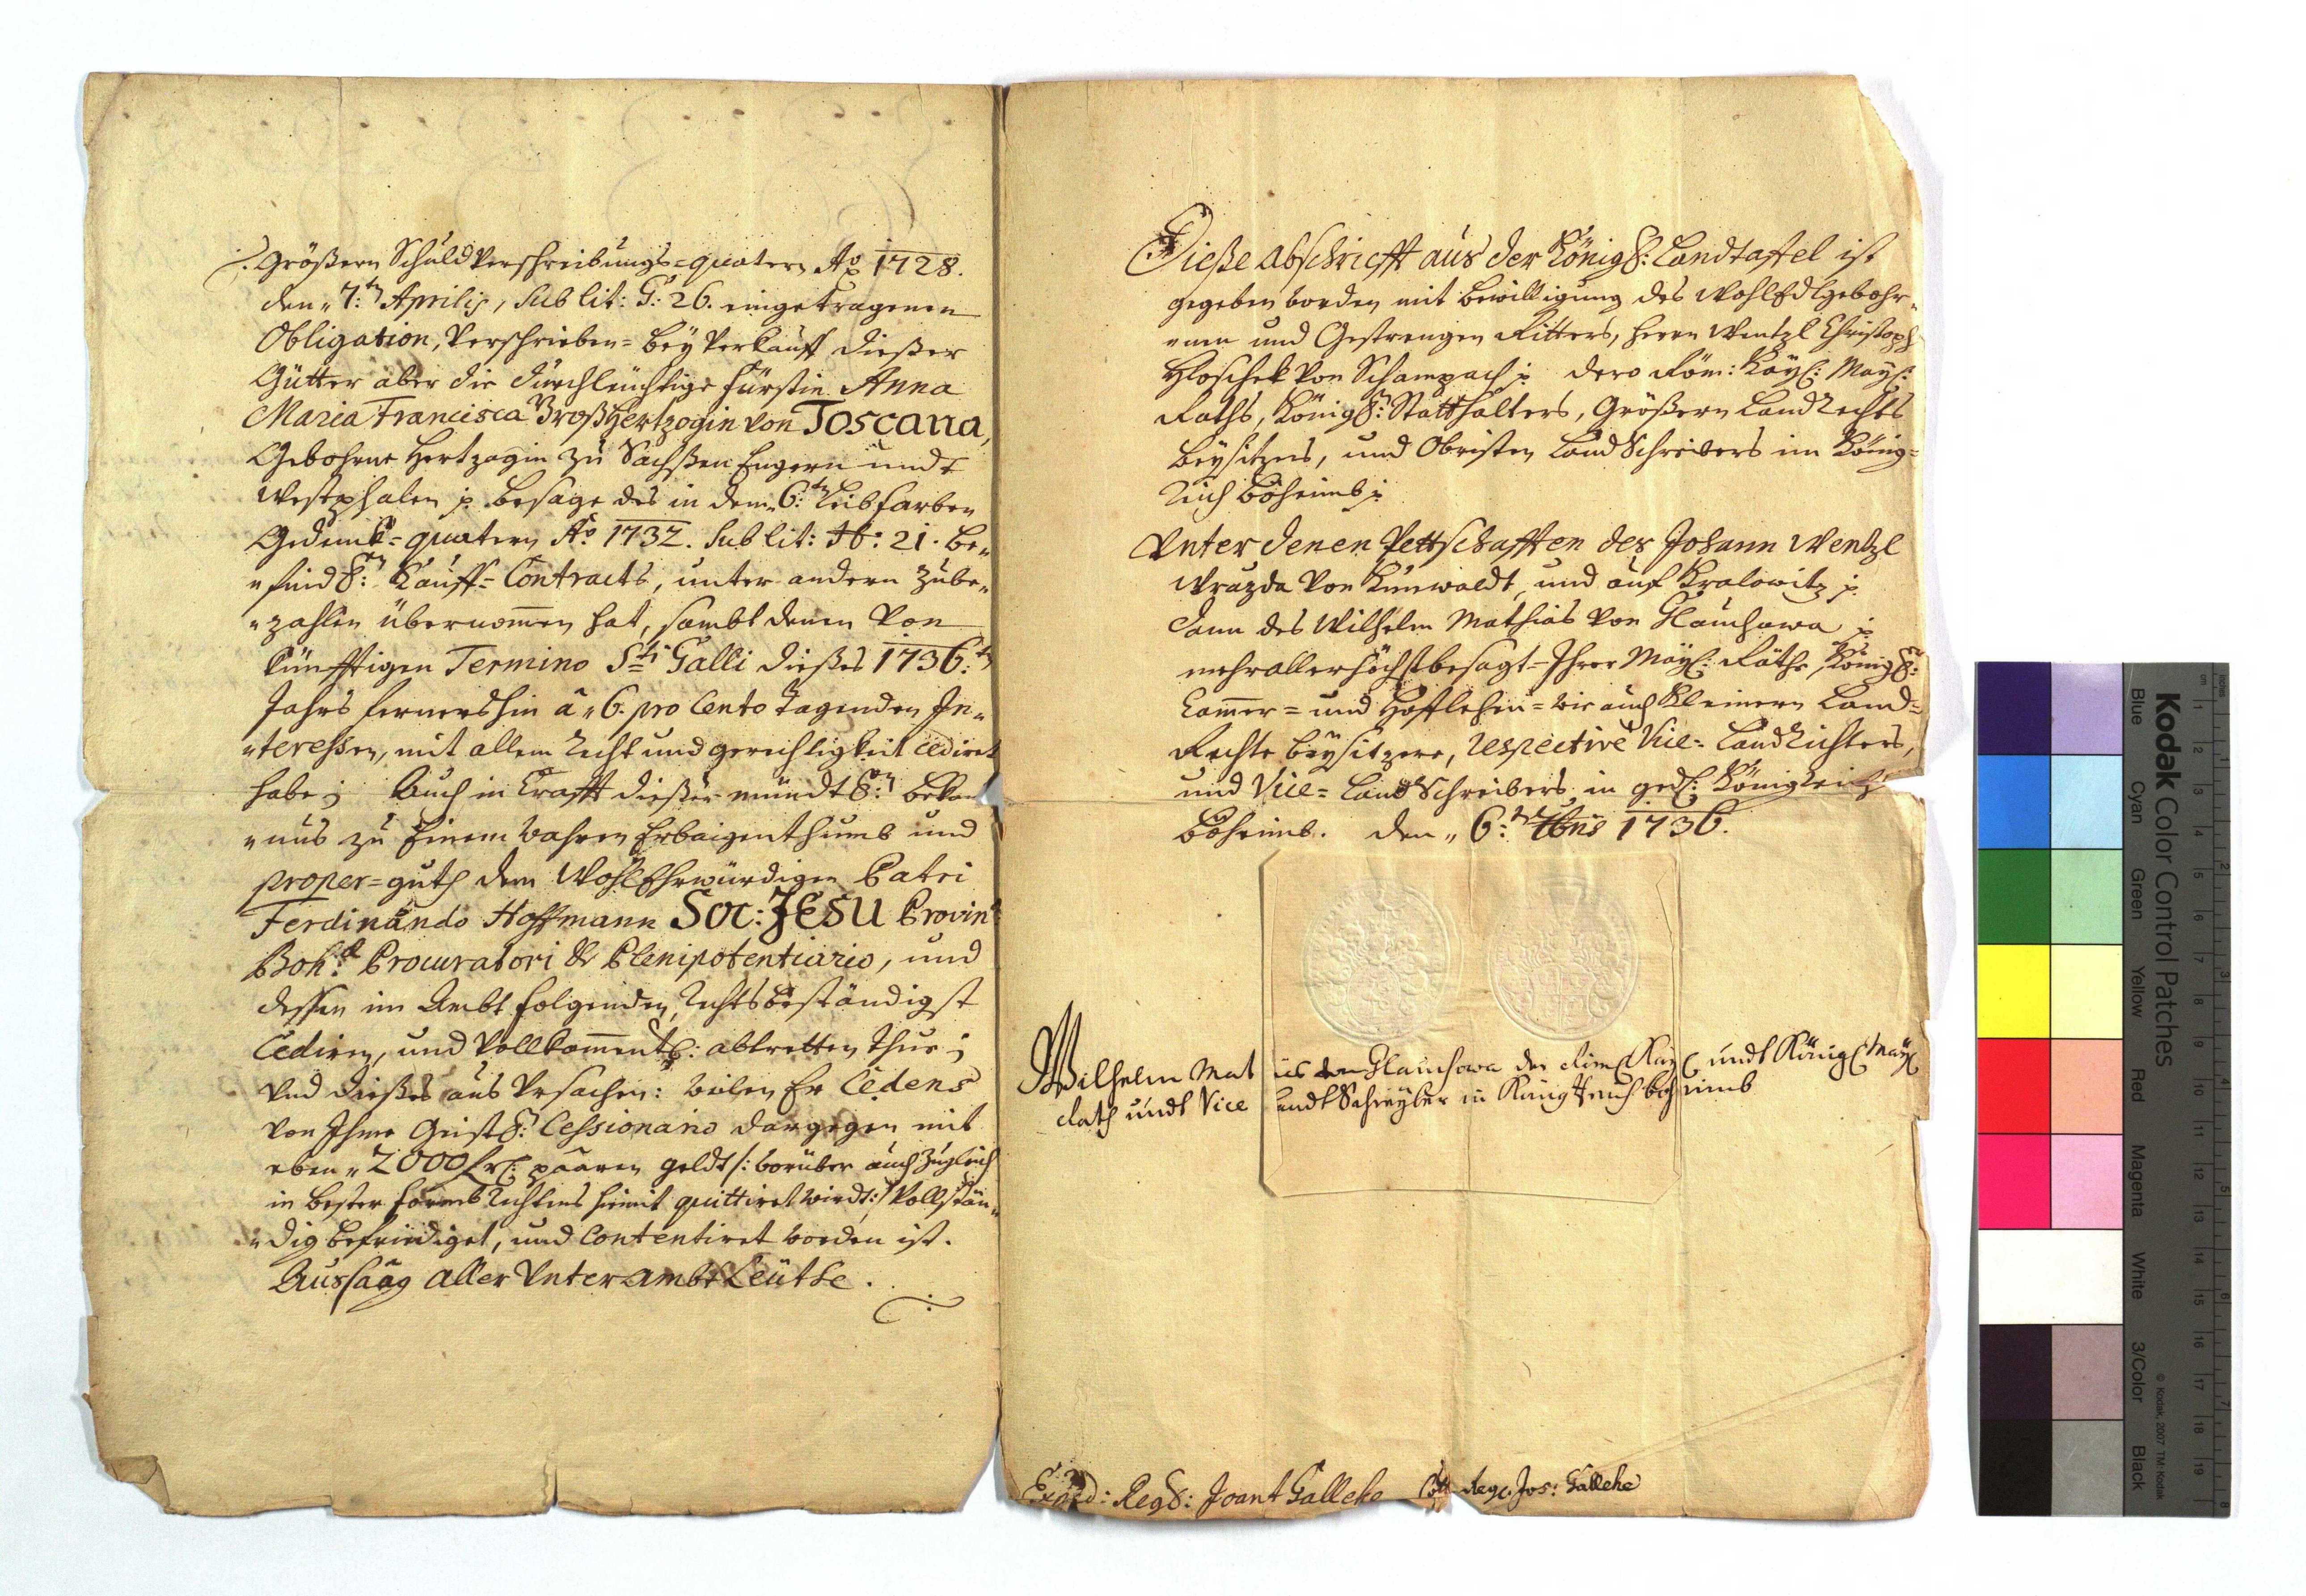 größern Schuldverschreibungs=quatern Aō 1728.
den „7:ten Aprilis, sub lit: G: 26. eingetragenen
Obligation, verschrieben= bey verkauff dießer
Gütter aber die durchleüchtige fürstin Anna
Maria Francisca Großhertzogin von Toscana,
Gebohrne Hertzogin zu Sachßen Engern undt
Westphalen p. besage des in dem „6:ten Leibfarben
Gedenck= quatern Aō 1732. sub lit: H: 21. be„
„findl:en Kauff= Contracts, unter andern zube„
„zahlen übernom̅en hat, sambt denen von
künfftigen Termino S:ti Galli dießes 1736:ten
Jahrs fernershin â „6. pro Cento tragenden In„
„teressen, mit allem recht und gerechtigkeit cediret
habe; Auch in Krafft dießer mündtl:en bekan
„nus zu Einem wahren Erbaigenthumb und
proper=guth dem WohlEhrwürdigen Patri
Ferdinando Hoffmann Soc: JESU Provin:
Boh:æ Procuratori & Plenipotentiario, und
dessen im Ambt folgenden, rechtsbeständigst
Cediren, und vollkom̅entl: abtretten thue;
Und dießes aus Ursachen: weilen Er Cedens
von Ihme Geistl: Cessionario dargegen mit
eben „2000 fl: paaren geldt /: worüber auch zugleich
in bester formb rechtens hiemit quittiret wirdt :/ vollstän„
„dig befriediget, und Contentiret worden ist.
Aussaag aller Unterambtleüthe.
Dieße Abschriefft aus der Königl: Landtaffel ist
gegeben worden mit bewilligung des WohlEdlgebohr„
„nen und Gestrengen Ritters, Herrn Wentzl Christoph
Hloschek von Schampach p: dero Röm: Kayl: Mayl:
Raths, Königl: Statthalters, Größern Landrechts
beysitzers, und Obristen Landschreibers im König=
reich Böheimb p:
Unter denen Pettschafften des Johann Wentzl
Wrazda von Kunwaldt, und auf Kralowitz p.
Dann des Wilhelm Mathias von Glauchowa p:
mehrallerhöchstbesagt= Ihrer Mayl: Räthe, Königl:
Cam̅er= und Hofflehen= wie auch Kleinern Land=
Rechts beysitzere, respective Vice= Landrichters,
und Vice= Landschreibers in gedl: Königreich
Böheimb. den „6:ten 7bris 1736.
Wilhelm Mat ias von Glauchowa der Röm Kay undt Königl May
Rath undt Vice landt Schreyber in Königreich Böheimb
Exped: Regr: Joan Galleke Coll Regr. Jos: Galleke
Kodak Color Control Patches
Blue Cyan Green Yellow Red Magenta White 3/Color Black
© Kodak, 2007 TM: Kodak
inches 1 2 3 4 5 6 7 8
cm 1 2 3 4 5 6 7 8 9 10 11 12 13 14 15 16 17 18 19